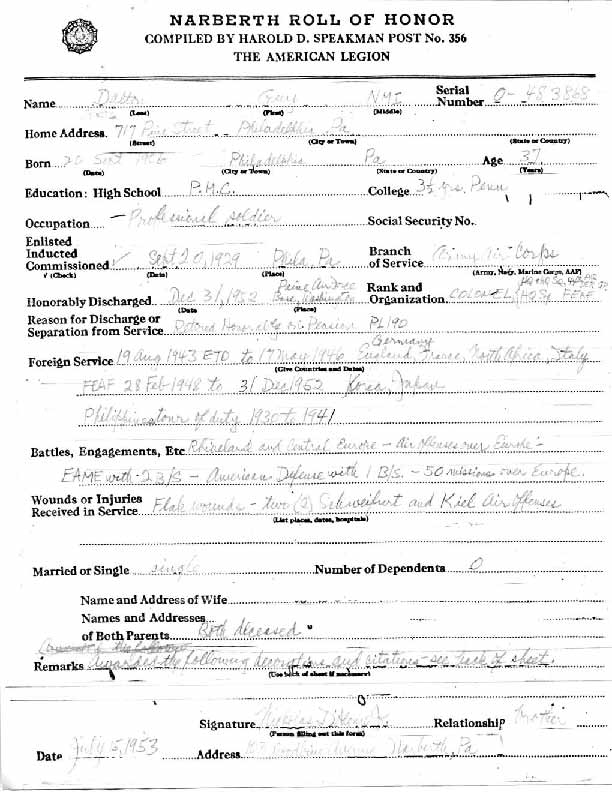 NARBERTH ROLL OF HONOR
COMPILED BY HAROLD D. SPEAKMAN POST No. 356
THE AMERICAN LEGION
Name NMI Serial Number O-483868
(Last) (First) (Middle)
Home Address 717 Pine Street - Philadelphia, Pa
(Street) (City or Town) (State or Country)
Born 20 Sept 1906 Philadelphia Pa Age 37
(Date) (City or Town) (State or Country) (Years)
Education: High School P.M.C. College 3½ yrs. Penn
Occupation - Professional soldier Social Security No.
Enlisted
Inducted
Commissioned Sept 20, 1929 Phila, Pa Branch of Service Army Air Corps
√ (Check) (Date) (Place) (Army, Navy, Marine Corps, AAF)
Honorably Discharged Dec 31, 1952 Base, Washington Rank and Organization COLONEL FEAF
(Date (Place)
Reason for Discharge or
Separation from Service Retired PL190
Germany
Foreign Service 19 Aug 1943 ETO to 17 May 1946 England, France, North Africa, Italy
(Give Countries and Dates)
FEAF 28 Feb 1948 to 31 Dec 1952 Korea, Japan
Philippines tour of duty 1930 to 1941
Battles, Engagements, Etc Rhineland and Central Europe - Air offenses over Europe -
EAME with 2 B/S - American Defense with 1 B/S. - 50 missions over Europe.
Wounds or Injuries
Received in Service Flak wounds - two (2) Schweifurt and Kiel Air Offenses
(List places, dates, hospitals)
Married or Single single Number of Dependents 0
Name and Address of Wife
Names and Addresses
of Both Parents Both deceased
Remarks Awarded the following decorations and citations - see back of sheet.
(Use back of sheet if necessary)
Signature Nicholas Relationship brother
(Person filling out this form)
Date July 15, 1953 Address Woodbine Avenue Narberth, Pa